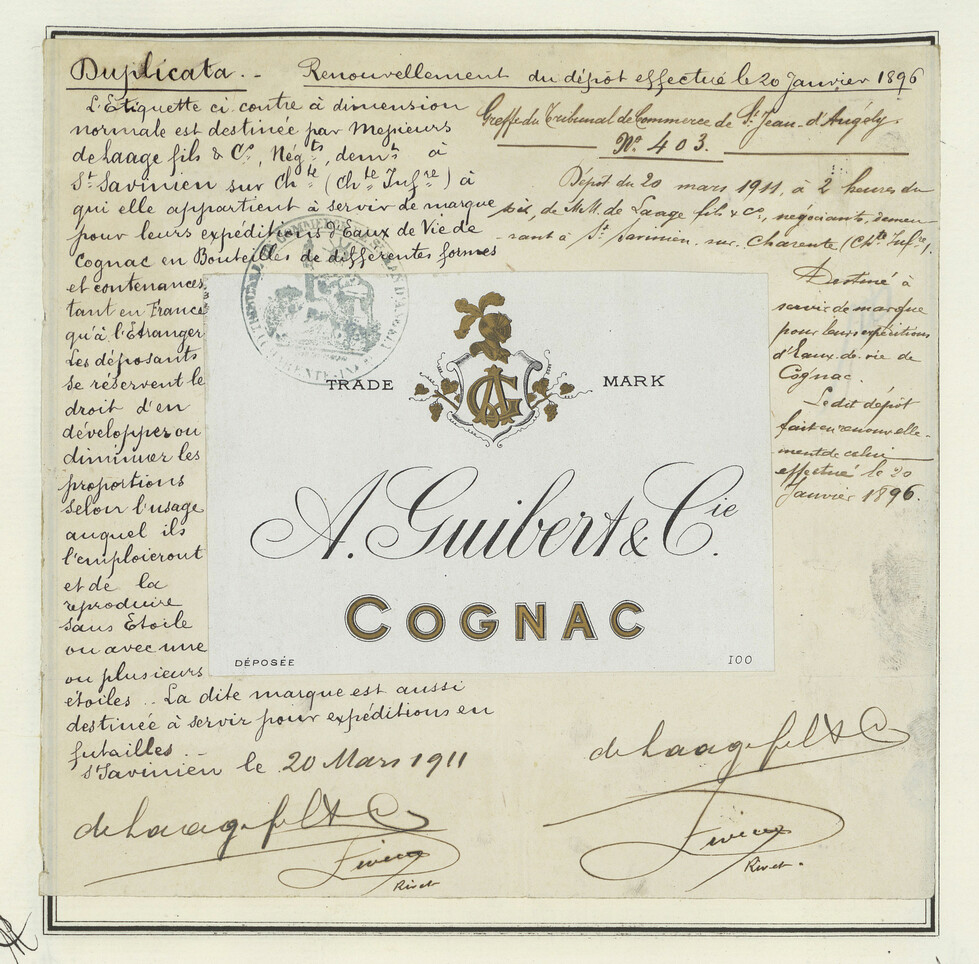 Duplicata. - Renouvellement du dépôt effectué le 20 Janvier 1896
L'Etiquette ci contre à dimension
normale est destinée par Messieurs
de Laage fils & Cº, Négts, demt à
St Savinien sur Chte (Chte Infre) à
qui elle appartient à servir de marque
pour leurs expéditions d'Eaux de Vie de
Cognac en Bouteilles de différentes formes
et contenances
tant en France
qu'à l'Etranger
Les déposants
se réservent le
droit d'en
développer ou
diminuer les
proportions
selon l'usage
auquel ils
l'emploieront
et de la
reproduire
sans Etoile
ou avec une
ou plusieurs
étoiles .. La dite marque est aussi
destinée à servir pour expéditions en
futailles. -
St Savinien le 20 Mars 1911
de Laage fils & Co
Rivet
Greffe du Tribunal de Commerce de St Jean-d'Angély.
Nº 403.
Dépôt du 20 mars 1911, à 2 heures du
soir, de MM. de Laage fils & Cº, négociants, demeu
-rant à St Savinien-sur-Charente (Chte Infre).
Destiné à
servir de marque
pour leurs expéditions
d'Eaux-de-vie de
Cognac.
Le dit dépôt
fait en renouvelle-
ment de celui
effectué le 20
Janvier 1896.
TRADE MARK
AG
A. Guibert & Cie.
COGNAC
DÉPOSÉE 100
de Laage fils & Co
Rivet.